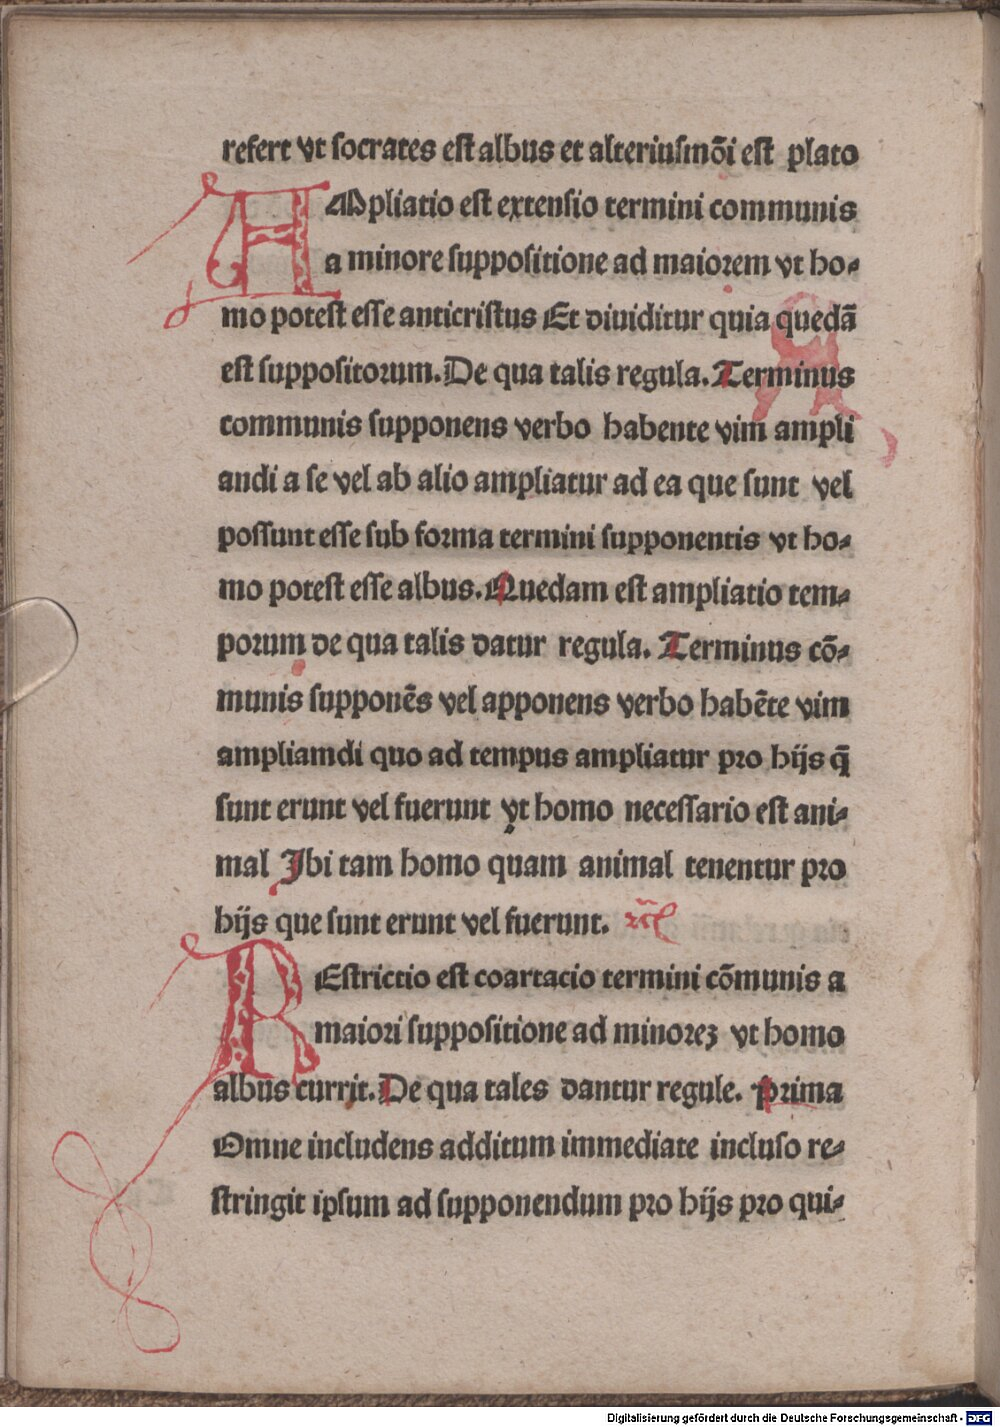 refert vt socrates est albus et alteriusmōi est plato
AMpliatio est extensio termini communis
a minore suppositione ad maiorem vt ho-
mo potest esse anticristus Et diuiditur quia quedā
est suppositorum. De qua talis regula. Terminus
communis supponens verbo habente vim ampli
andi a se vel ab alio ampliatur ad ea que sunt vel
possunt esse sub forma termini supponentis vt ho-
mo potest esse albus. Quedam est ampliatio tem-
porum de qua talis datur regula. Terminus cō-
munis supponēs vel apponens verbo habēte vim
ampliamdi quo ad tempus ampliatur pro hijs q̄
sunt erunt vel fuerunt vt homo necessario est ani-
mal Ibi tam homo quam animal tenentur pro
hijs que sunt erunt vel fuerunt.
REstrictio est coartacio termini cōmunis a
maiori suppositione ad minorez vt homo
albus currit. De qua tales dantur regule. Prima
Omne includens additum immediate incluso re-
stringit ipsum ad supponendum pro hijs pro qui-
Digitalisierung gefördert durch die Deutsche Forschungsgemeinschaft - DFG